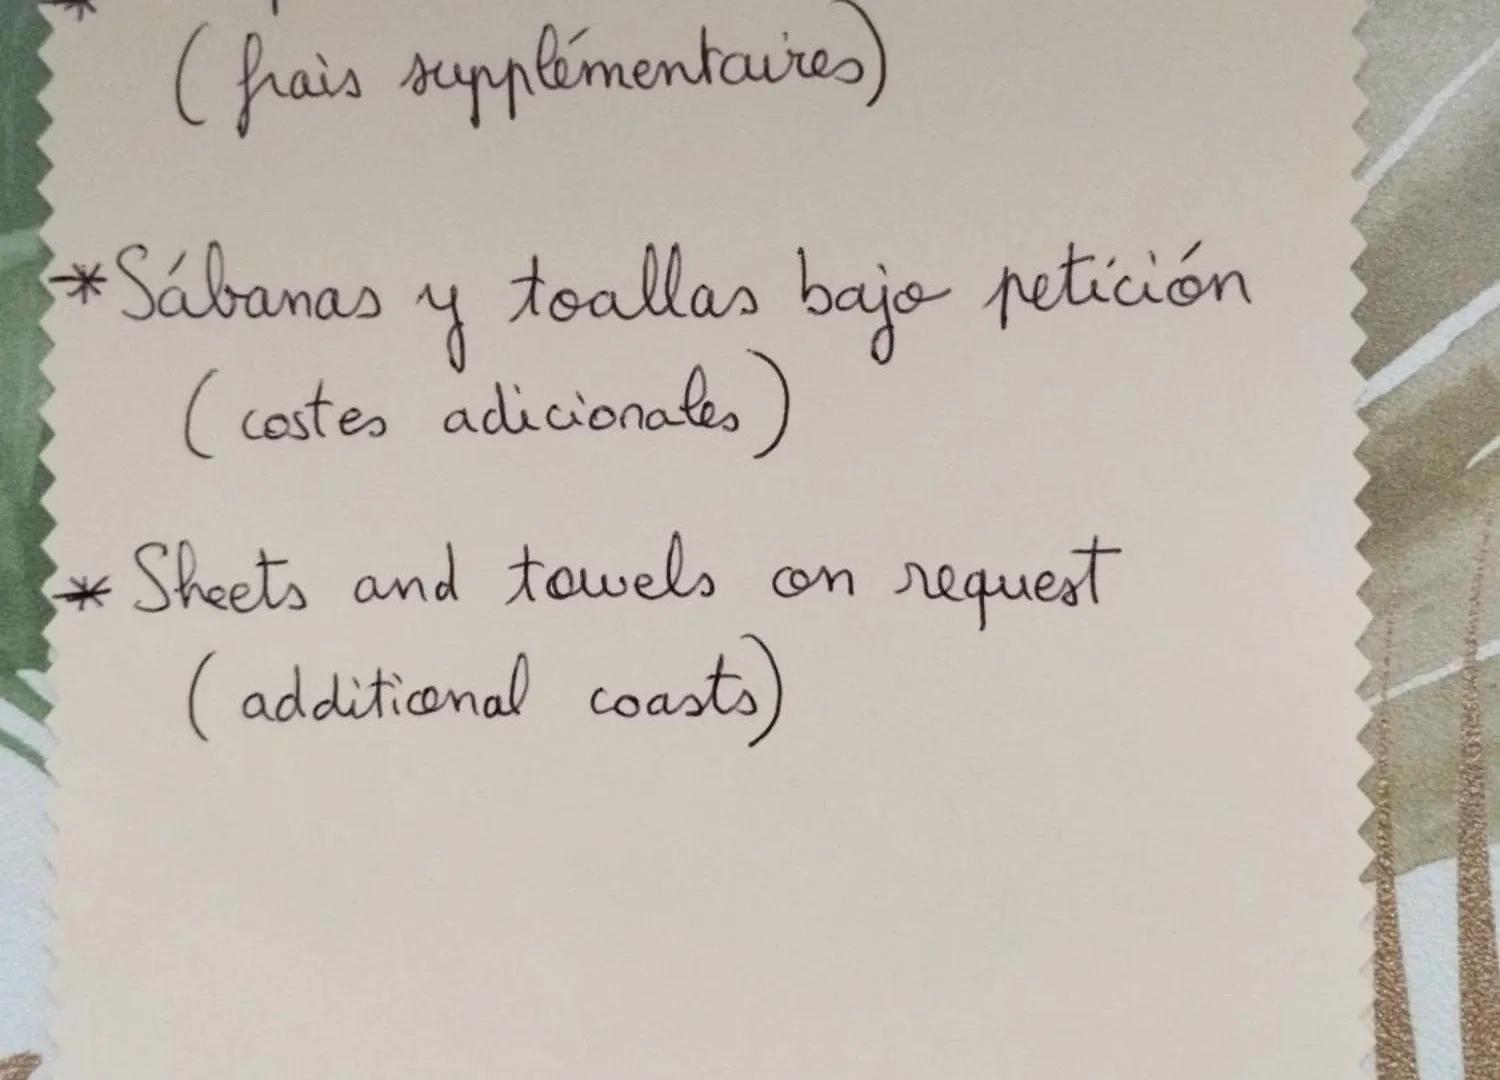 *
(frais supplémentaires)
*Sábanas y toallas bajo petición
(costes adicionales)
* Sheets and towels on request
(additional coasts)